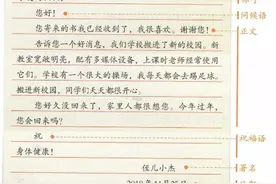 您好！
问候语
您寄来的书我已经收到了，我很喜欢。谢谢您！
正文
告诉您一个好消息，我们学校搬进了新的校园。新
教室宽敞明亮，配有多媒体设备，上课时老师经常使用
它们。学校有一个很大的操场，我每天都会去踢足球。
搬进新校园，同学们天天都很开心。
您好久没回来了，家里人都很想您。今年过年，
您会回来吗？
祝
祝福语
身体健康！
侄儿小杰
署名